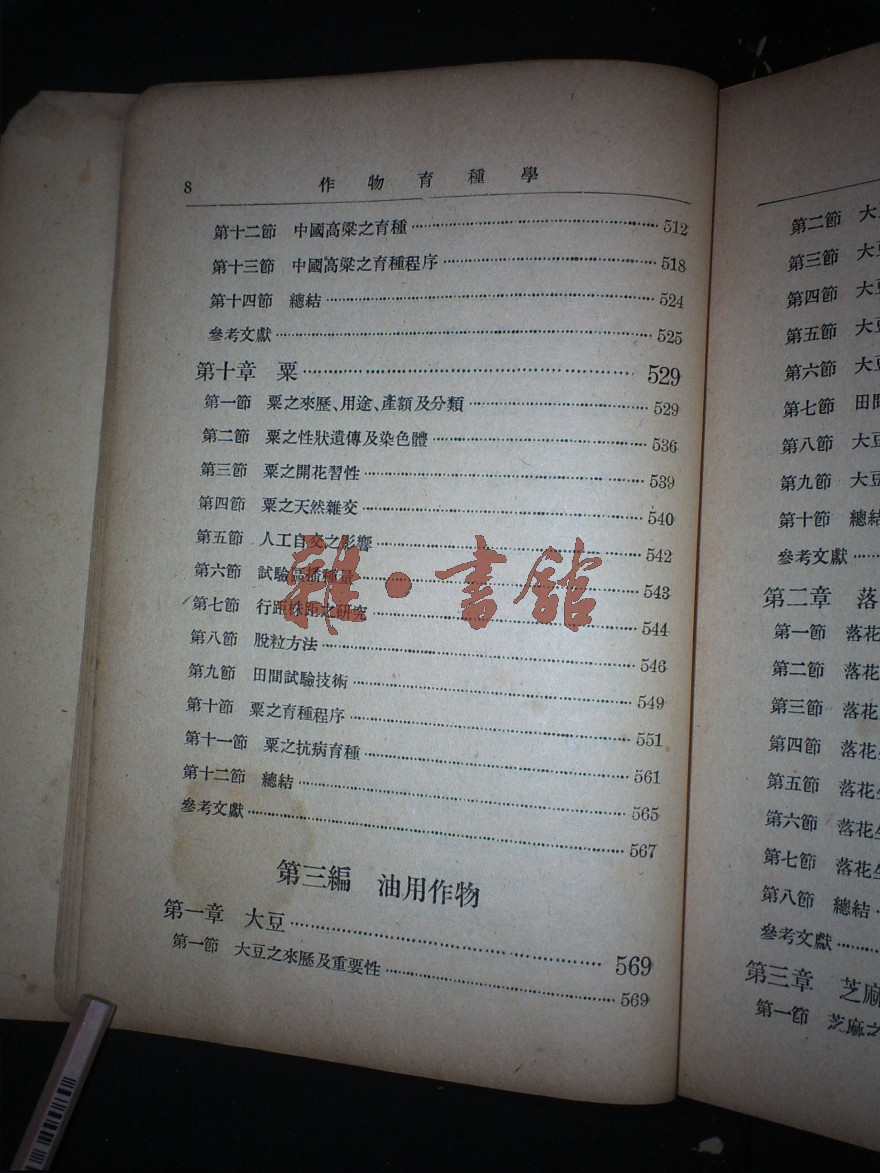 8 作物育種學
第十二節 中國高粱之育種 512
第十三節 中國高粱之育種程序 518
第十四節 總結 524
參考文獻 525
第十章 粟 529
第一節 粟之來歷、用途、產額及分類 529
第二節 粟之性狀遺傳及染色體 536
第三節 粟之開花習性 539
第四節 粟之天然雜交 540
第五節 人工自交之影響 542
第六節 試驗區播種量 543
第七節 行距株距之研究 544
第八節 脫粒方法 546
第九節 田間試驗技術 549
第十節 粟之育種程序 551
第十一節 粟之抗病育種 561
第十二節 總結 565
參考文獻 567
第三編 油用作物
第一章 大豆 569
第一節 大豆之來歷及重要性 569
雜·書館
第二節 大
第三節 大豆
第四節 大豆
第五節 大豆
第六節 大豆
第七節 田間
第八節 大豆
第九節 大豆
第十節 總結
參考文獻
第二章 落
第一節 落花
第二節 落花
第三節 落花
第四節 落花生
第五節 落花生
第六節 落花生
第七節 落花生
第八節 總結
參考文獻
第三章 芝麻
第一節 芝麻之